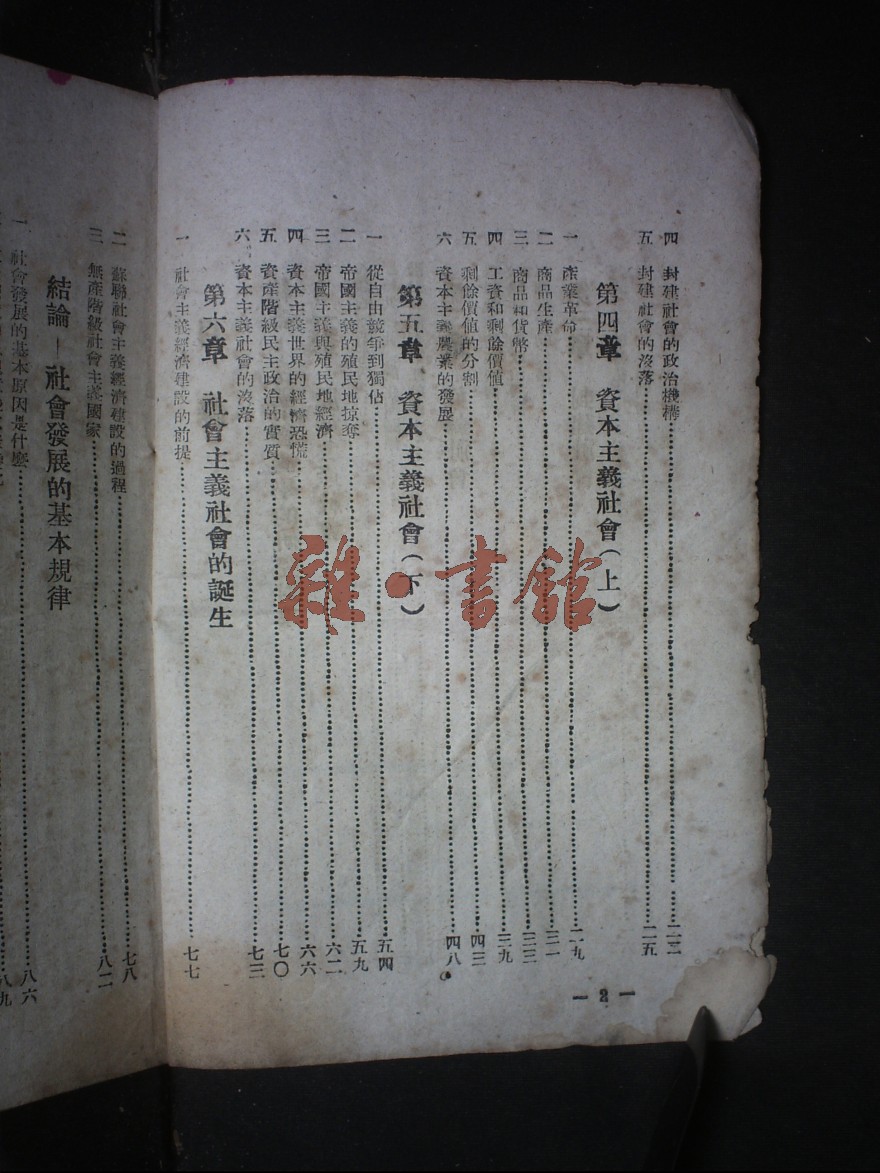 四 封建社會的政治機構 二三
五 封建社會的沒落 二五
第四章 資本主義社會(上)
一 產業革命 二九
二 商品生產 三一
三 商品和貨幣 三三
四 工資和剩餘價值 三九
五 剩餘價值的分割 四三
六 資本主義農業的發展 四八
第五章 資本主義社會(下)
一 從自由競爭到獨佔 五四
二 帝國主義的殖民地掠奪 五九
三 帝國主義與殖民地經濟 六二
四 資本主義世界的經濟恐慌 六六
五 資產階級民主政治的實質 七〇
六 資本主義社會的沒落 七三
第六章 社會主義社會的誕生
一 社會主義經濟建設的前提 七七
二 蘇聯社會主義經濟建設的過程 七八
三 無產階級社會主義國家 八二
結論—社會發展的基本規律
一 社會發展的基本原因是什麼 八六
八九
— 2 —
雜·書館